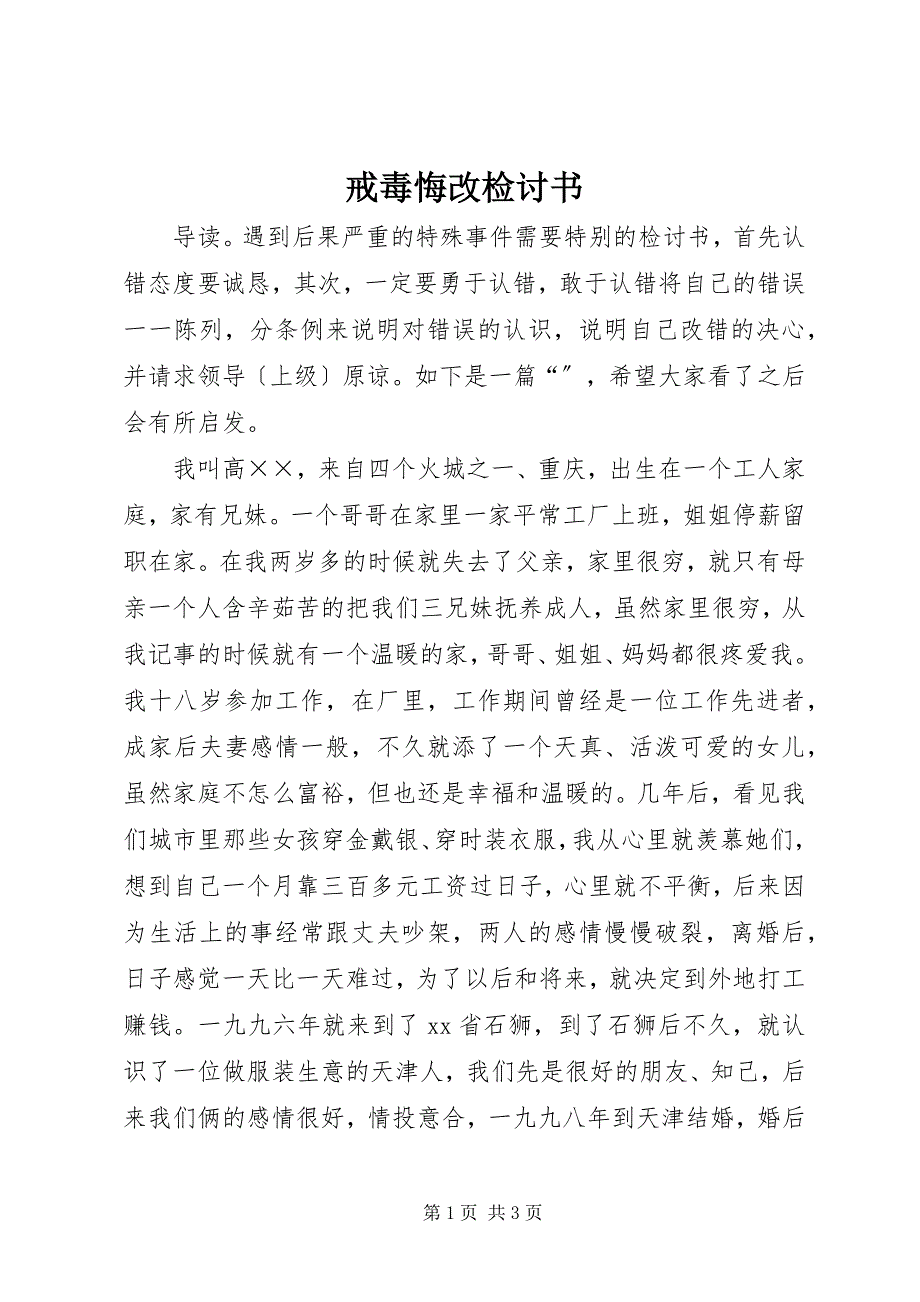 戒毒悔改检讨书
导读。遇到后果严重的特殊事件需要特别的检讨书，首先认
错态度要诚恳，其次，一定要勇于认错，敢于认错将自己的错误
一一陈列，分条例来说明对错误的认识，说明自己改错的决心，
并请求领导〔上级〕原谅。如下是一篇“〞，希望大家看了之后
会有所启发。
我叫高××，来自四个火城之一、重庆，出生在一个工人家
庭，家有兄妹。一个哥哥在家里一家平常工厂上班，姐姐停薪留
职在家。在我两岁多的时候就失去了父亲，家里很穷，就只有母
亲一个人含辛茹苦的把我们三兄妹抚养成人，虽然家里很穷，从
我记事的时候就有一个温暖的家，哥哥、姐姐、妈妈都很疼爱我。
我十八岁参加工作，在厂里，工作期间曾经是一位工作先进者，
成家后夫妻感情一般，不久就添了一个天真、活泼可爱的女儿，
虽然家庭不怎么富裕，但也还是幸福和温暖的。几年后，看见我
们城市里那些女孩穿金戴银、穿时装衣服，我从心里就羡慕她们，
想到自己一个月靠三百多元工资过日子，心里就不平衡，后来因
为生活上的事经常跟丈夫吵架，两人的感情慢慢破裂，离婚后，
日子感觉一天比一天难过，为了以后和将来，就决定到外地打工
赚钱。一九九六年就来到了 xx 省石狮，到了石狮后不久，就认
识了一位做服装生意的天津人，我们先是很好的朋友、知己，后
来我们俩的感情很好，情投意合，一九九八年到天津结婚，婚后
第 1 页 共 3 页